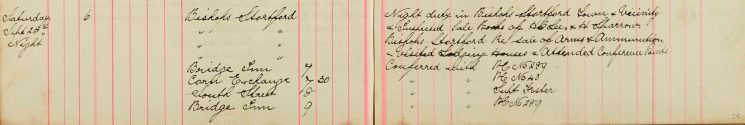 Saturday 6 Bishops Stortford Night duty in Bishops Stortford Town & Vicinity
Sept 28th " " & Inspected Sale Books of H Lee & H Sharrow
Night " " Bishops Stortford Re/ sale of Arms & Ammunition
" " & Visited Lodging Houses & Attended Conference Points
Bridge Inn 4 Conferred with PC No 289
Corn Exchange 7 20 " " PC No 40
South Street 8 " " Supt Foster
Bridge Inn 9 " " PC No 289